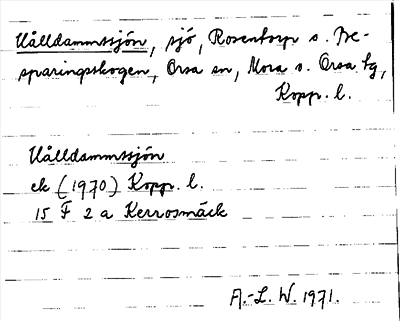 Uålldammssjön, sjö, Rosentorp s. Be-
sparingsskogen, Orsa sn, Mora o. Orsa tg,
Kopp. l.
Uålldammssjön
ek (1970) Kopp. l.
15 F 2 a Kerrosmäck
A.-L. W. 1971.